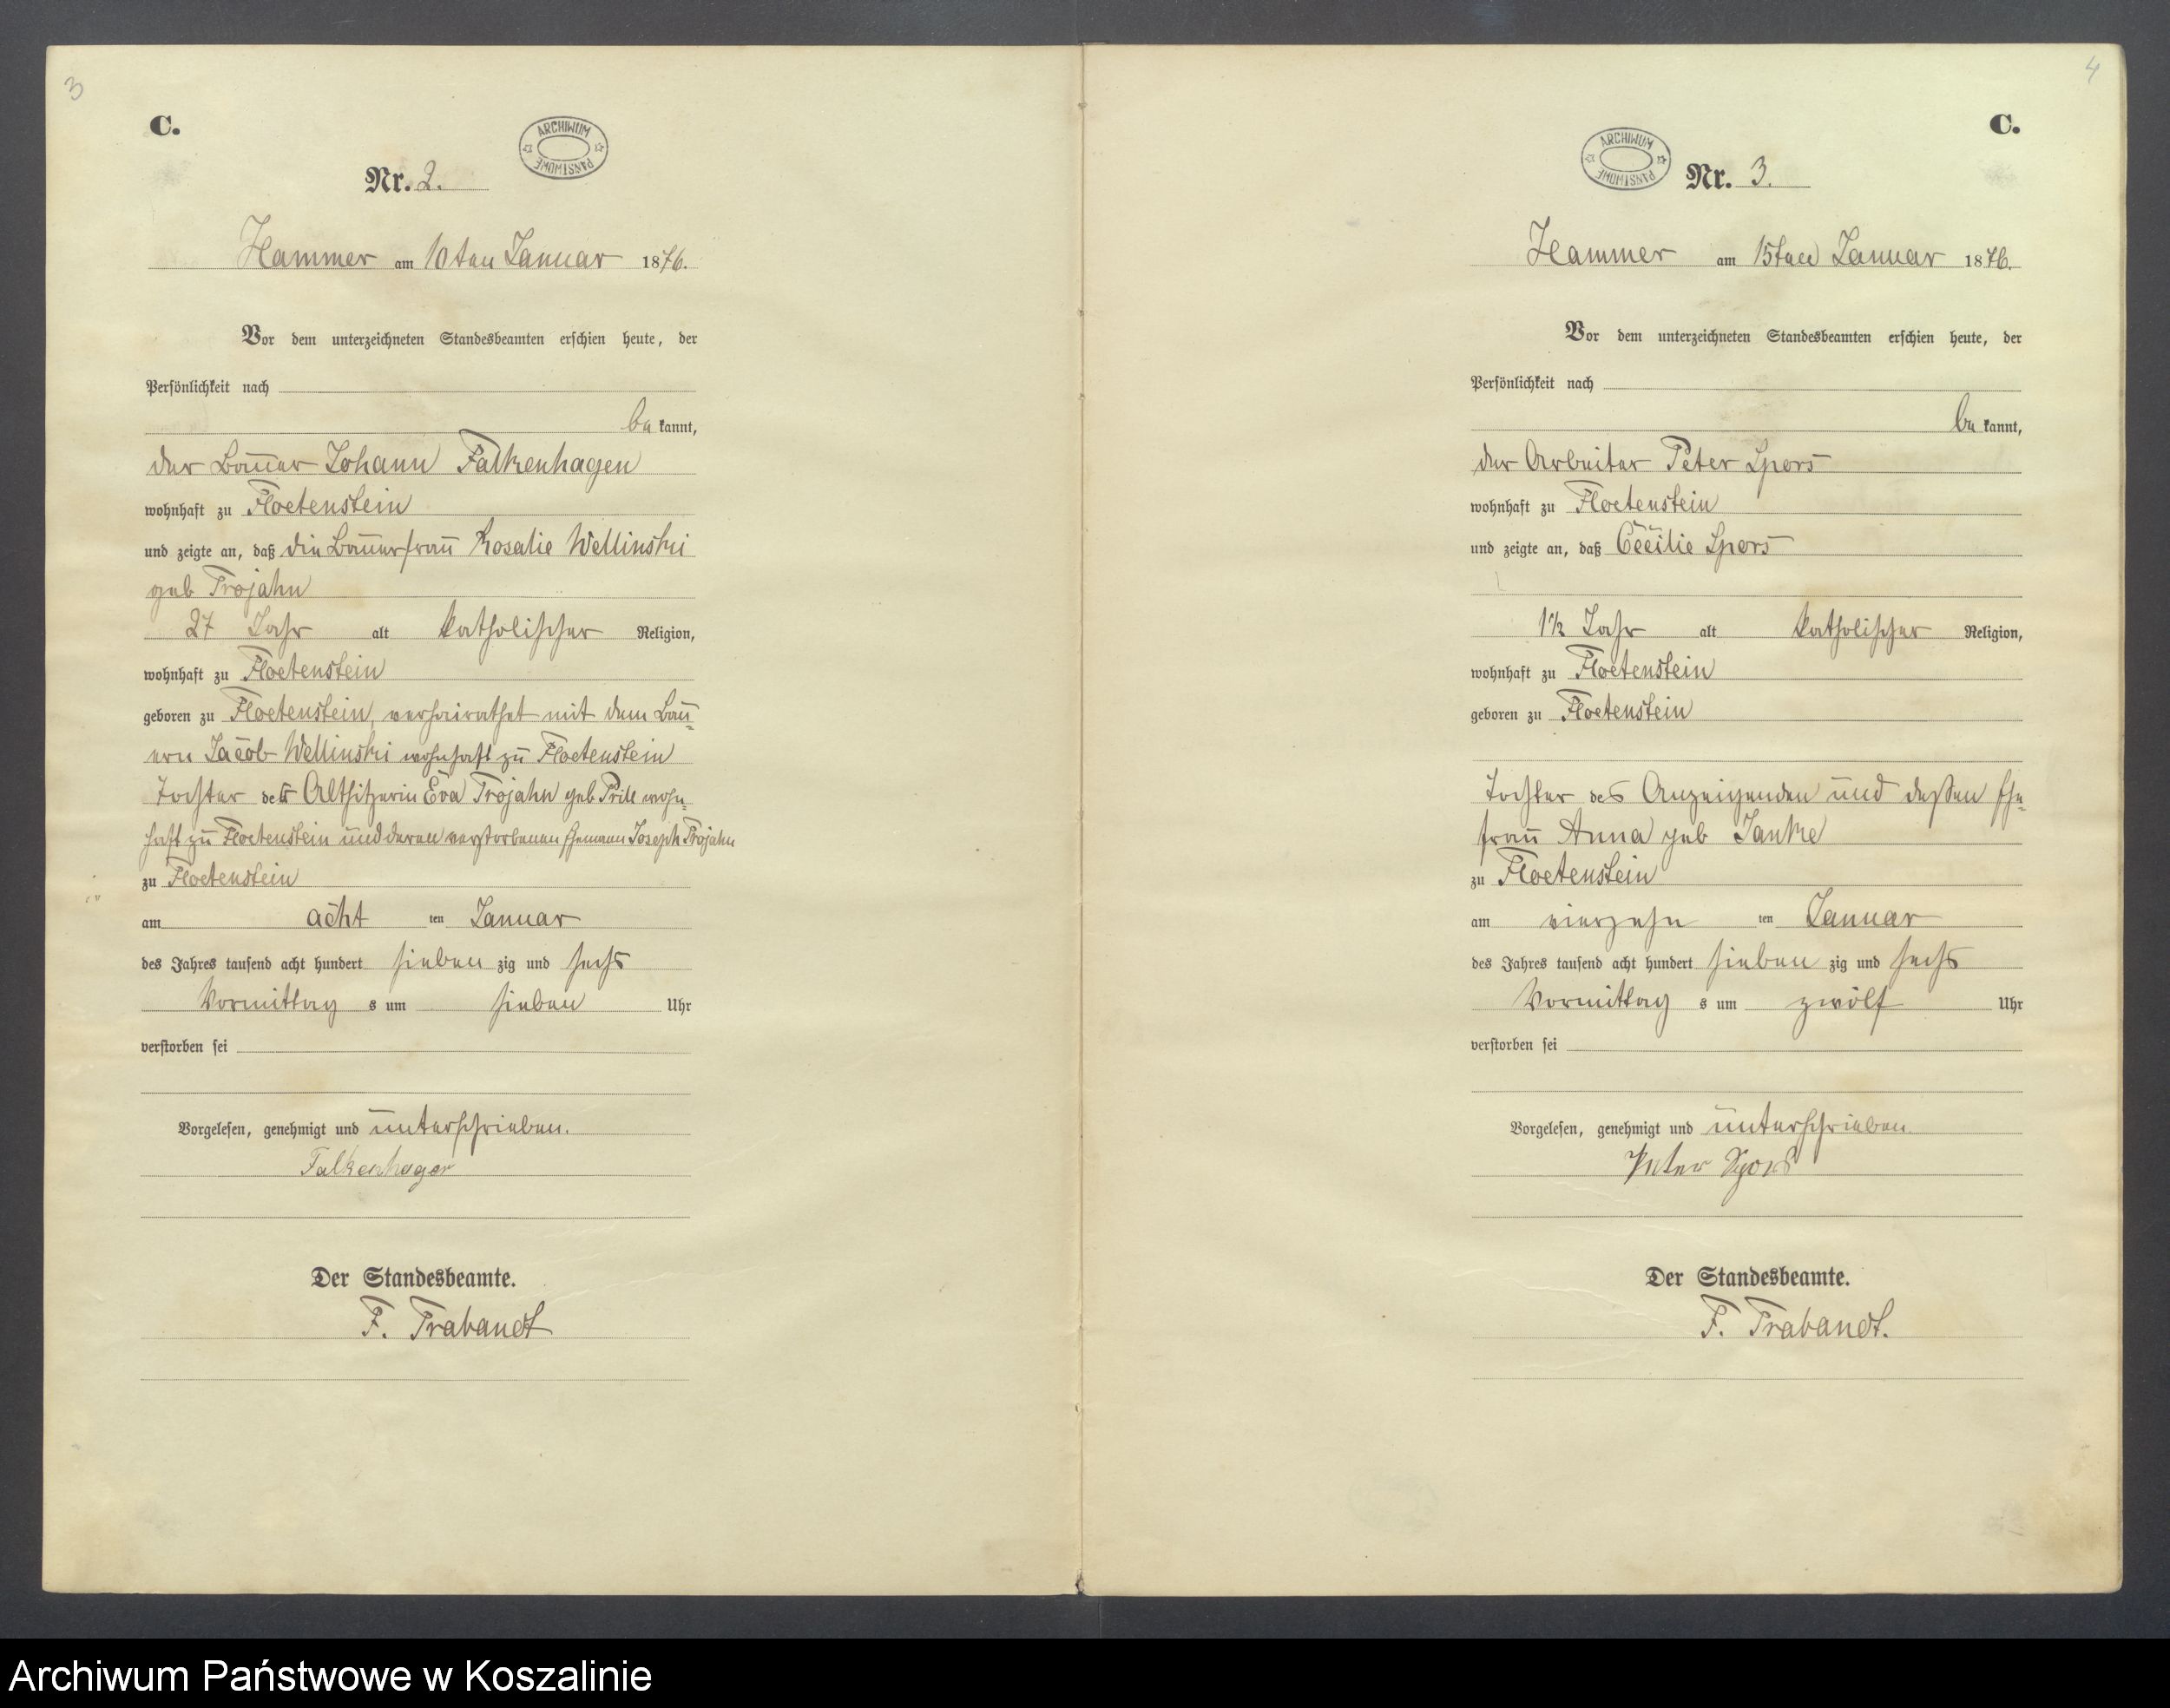 3
C.
ARCHIWUM PAŃSTWOWE
Nr. 2.
Hammer am 10ten Januar 1876.
Vor dem unterzeichneten Standesbeamten erschien heute, der
Persönlichkeit nach
be kannt,
der Bauer Johann Falkenhagen
wohnhaft zu Floetenstein
und zeigte an, daß die Bauerfrau Rosalie Wellinski
geb Trojahn
27 Jahr alt katholischer Religion,
wohnhaft zu Floetenstein
geboren zu Floetenstein, verheirathet mit dem Bau=
ern Jacob Wellinski wohnhaft zu Floetenstein
Tochter der Altsitzerin Eva Trojahn geb Prill wohn=
haft zu Floetenstein und deren verstorbenen Ehemann Joseph Trojahn
zu Floetenstein
am acht ten Januar
des Jahres tausend acht hundert sieben zig und sechs
Vormittag s um sieben Uhr
verstorben sei
Vorgelesen, genehmigt und unterschrieben.
Falkenhagen
Der Standesbeamte.
F. Trabandt
4
C.
ARCHIWUM PAŃSTWOWE
Nr. 3.
Hammer am 15ten Januar 1876.
Vor dem unterzeichneten Standesbeamten erschien heute, der
Persönlichkeit nach
be kannt,
der Arbeiter Peter Spors
wohnhaft zu Floetenstein
und zeigte an, daß Cecilie Spors
1½ Jahr alt katholischer Religion,
wohnhaft zu Floetenstein
geboren zu Floetenstein
Tochter des Anzeigenden und dessen Ehe=
frau Anna geb Janke
zu Floetenstein
am vierzehn ten Januar
des Jahres tausend acht hundert sieben zig und sechs
Vormittag s um zwölf Uhr
verstorben sei
Vorgelesen, genehmigt und unterschrieben.
Peter Spors
Der Standesbeamte.
F. Trabandt.
Archiwum Państwowe w Koszalinie